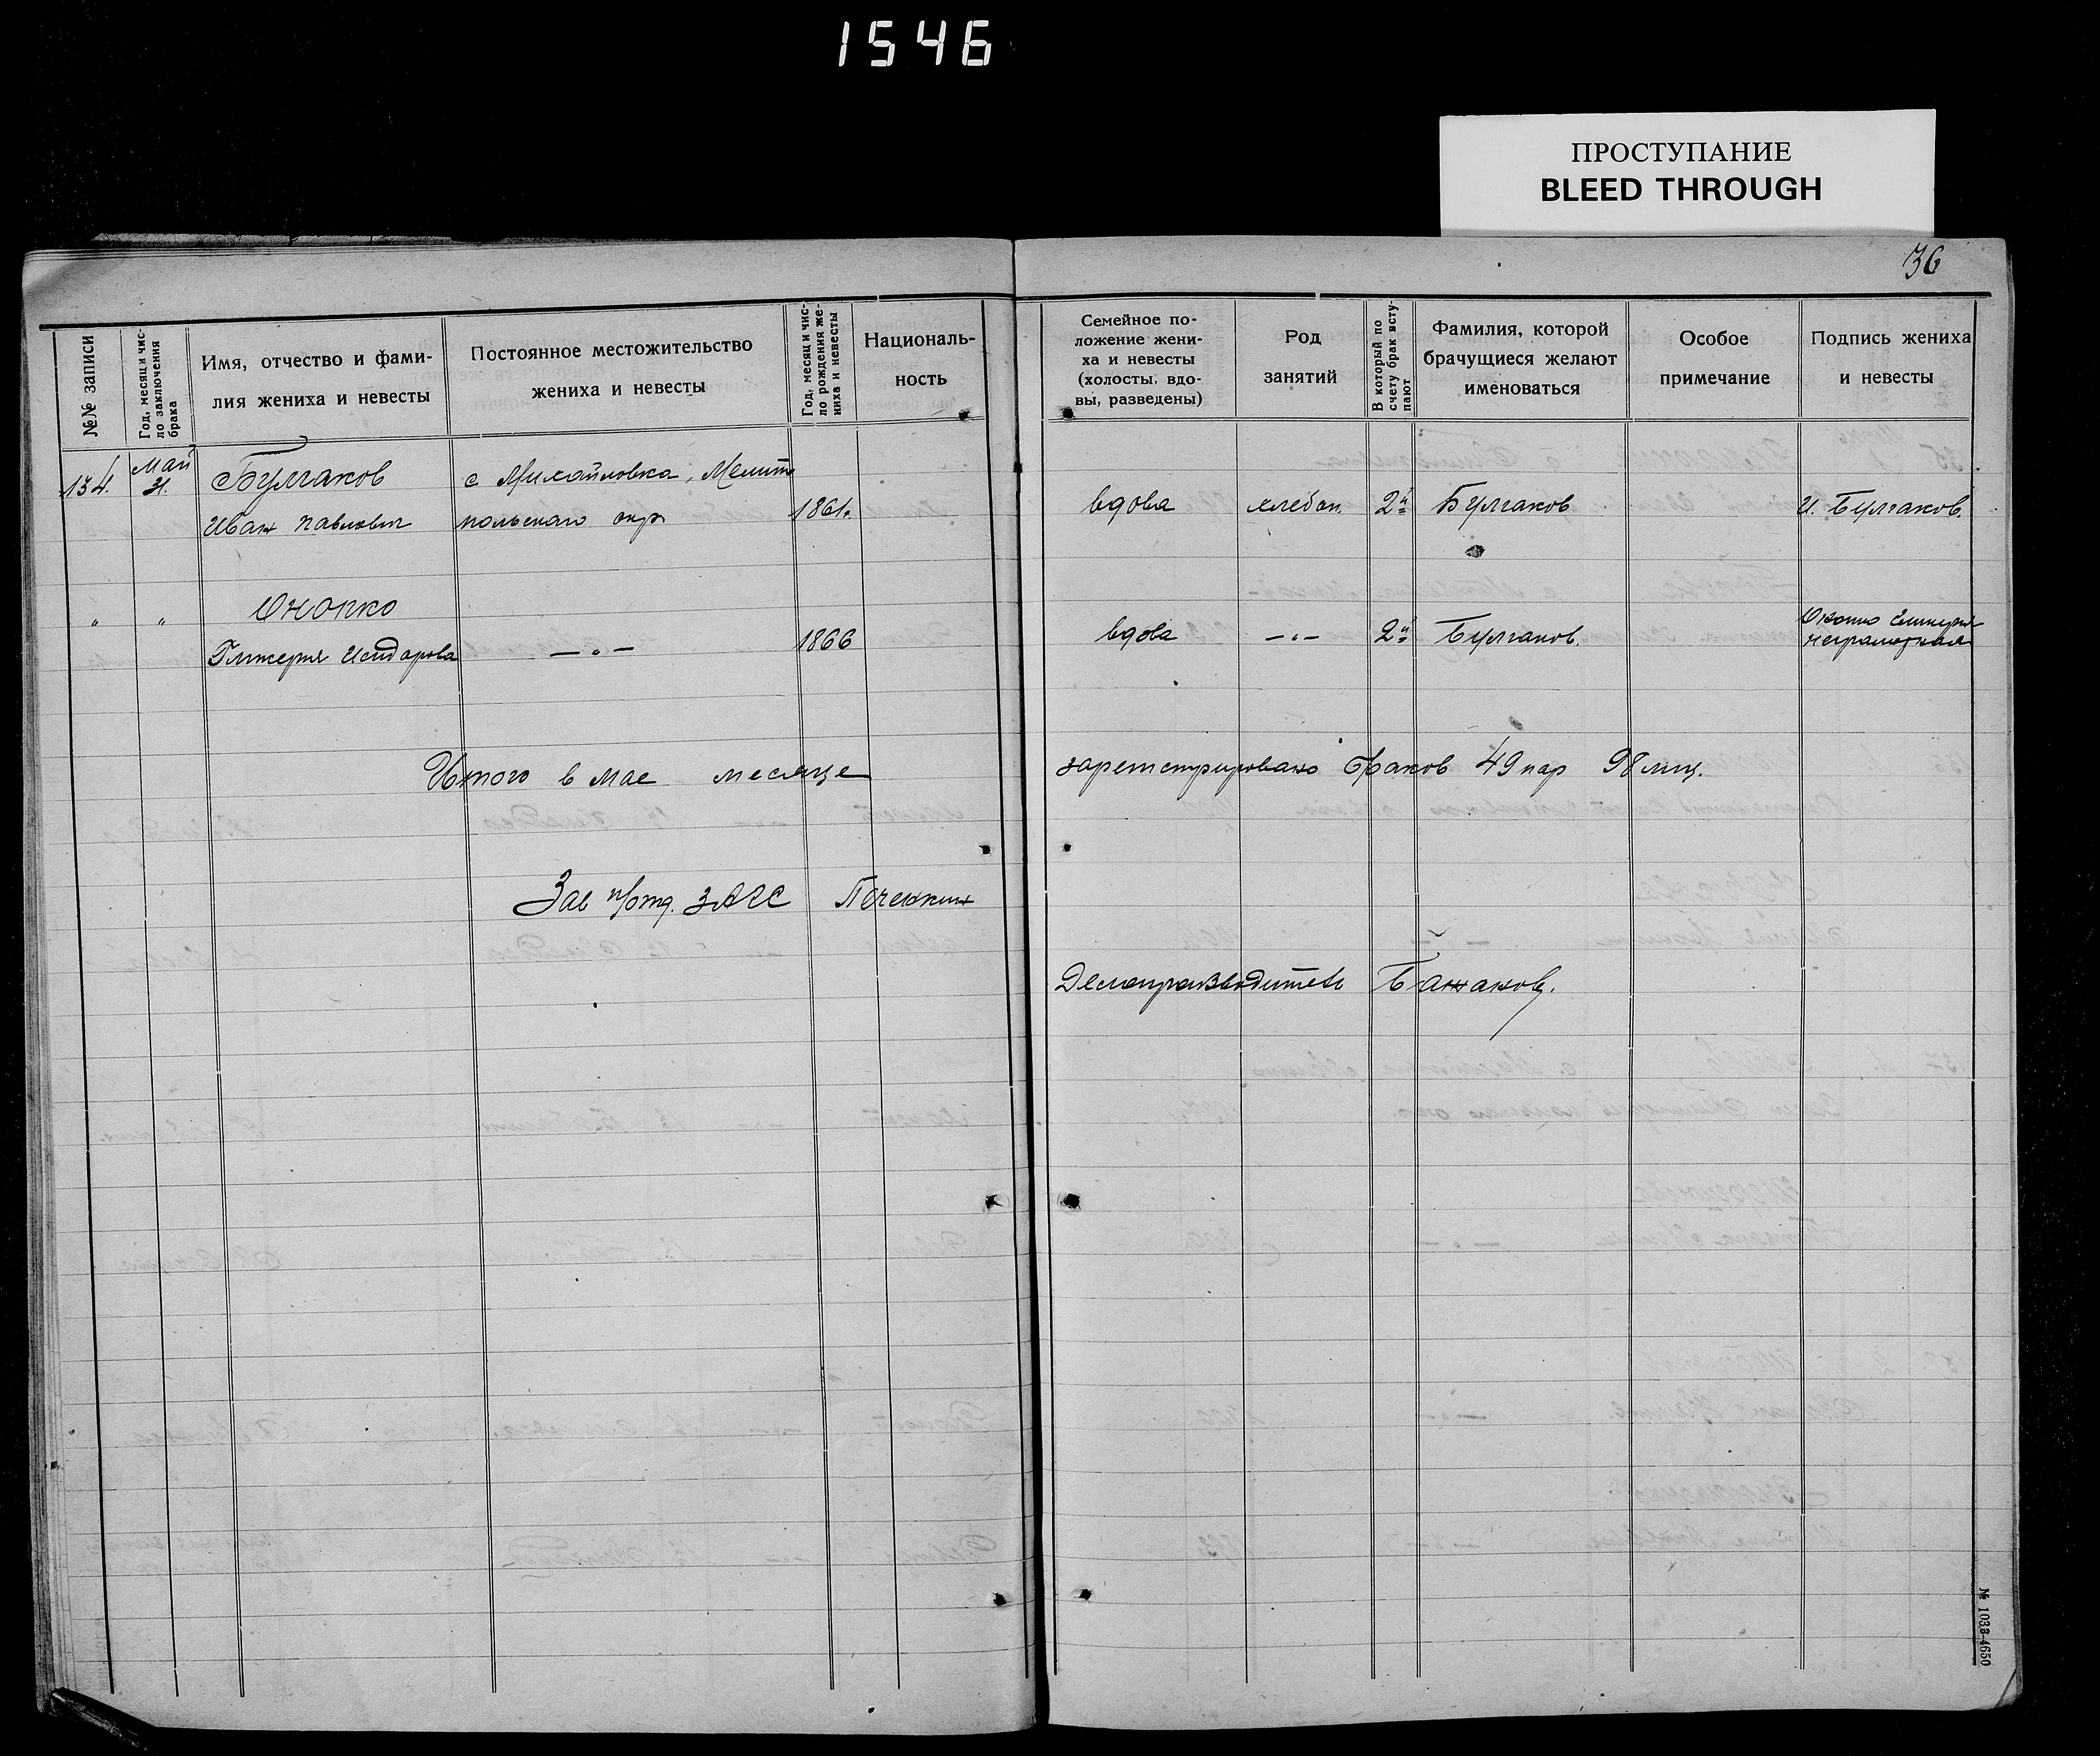 1546
ПРОСТУПАНИЕ
BLEED THROUGH
36
№№ записи
Год, месяц и чис-
ло заключения
брака
Имя, отчество и фами-
лия жениха и невесты
Постоянное местожительство
жениха и невесты
Год, месяц и чис-
ло рождения же-
ниха и невесты
Националь-
ность
Семейное по-
ложение жени-
ха и невесты
(холосты, вдо-
вы, разведены)
Род
занятий
В который по
счету брак всту-
пают
Фамилия, которой
брачущиеся желают
именоваться
Особое
примечание
Подпись жениха
и невесты
134.
Май
31.
Булгаков
Иван Павлович
с Михайловка, Мелито
польского окр
1861.
вдова
хлебоп.
2й
Булгаков
И. Булгаков.
"
"
Онопко
Гликерия Исидорова
— " —
1866
вдова
— " —
2й
Булгаков.
неграмотная
Итого в мае месяце зарегистрировано браков 49 пар 98 лиц.
Зав п/отд. ЗАГС
Делопроизводитель
№ 1033-4650